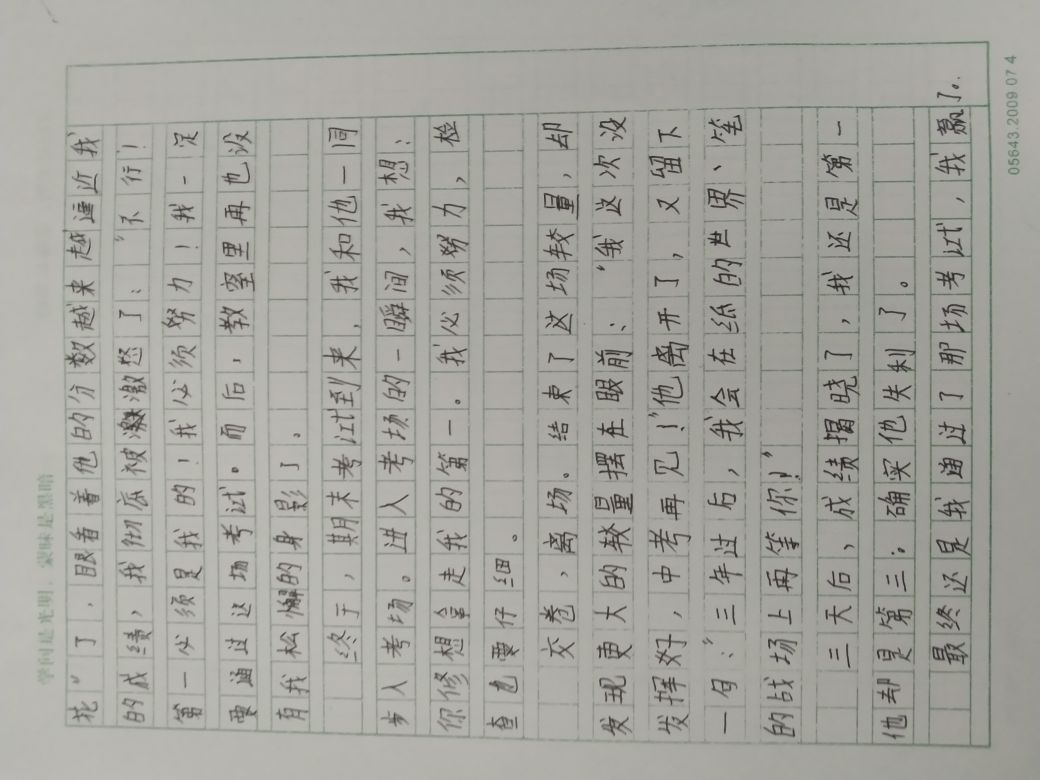 学问是光明，蒙昧是黑暗
花”了，眼看着他的分数越来越逼近我
的成绩，我彻底被激怒了：“不行！
第一必须是我的！我必须努力！我一定
要通过这场考试。而后，教室里再也没
有我松懈的身影了。
终于，期末考试到来，我和他一同
步入考场。进入考场的一瞬间，我想：
你修想拿走我的第一。我必须努力，检
查也要仔细。
交卷，离场。结束了这场较量，却
发现更大的较量摆在眼前、“我这次没
发挥好，中考再见！”他离开了，又留下
一句：“三年过后，我会在纸的世界、笔
的战场上再等你！”
三天后，成绩揭晓了，我还是第一
他却是第三。确实他失利了。
最终还是我通过了那场考试，我赢了。
05643.2009 07 4